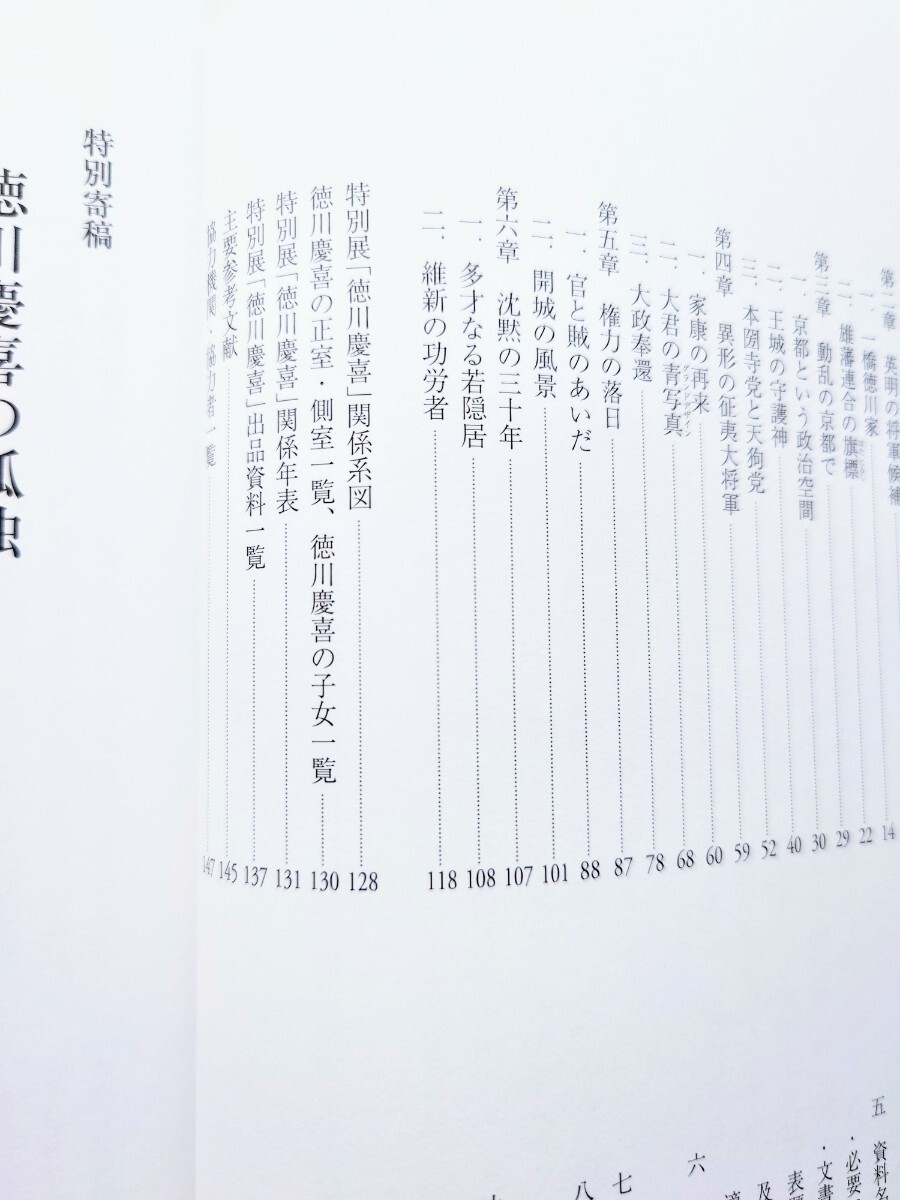 第二章　英明の将軍候補
一．一橋徳川家 14
二．雄藩連合の旗標 22
第三章　動乱の京都で 29
一．京都という政治空間 30
二．王城の守護神 40
三．本圀寺党と天狗党 52
第四章　異形の征夷大将軍 59
一．家康の再来 60
二．大君の青写真 グランドデザイン 68
三．大政奉還 78
第五章　権力の落日 87
一．官と賊のあいだ 88
二．開城の風景 101
第六章　沈黙の三十年 107
一．多才なる若隠居 108
二．維新の功労者 118
特別展「徳川慶喜」関係系図 128
徳川慶喜の正室・側室一覧、徳川慶喜の子女一覧 130
特別展「徳川慶喜」関係年表 131
特別展「徳川慶喜」出品資料一覧 137
主要参考文献 145
協力機関・協力者一覧 147
五　資料名
・必要
・文書
表題
及
六
七
八
特別寄稿
徳川慶喜の孤独